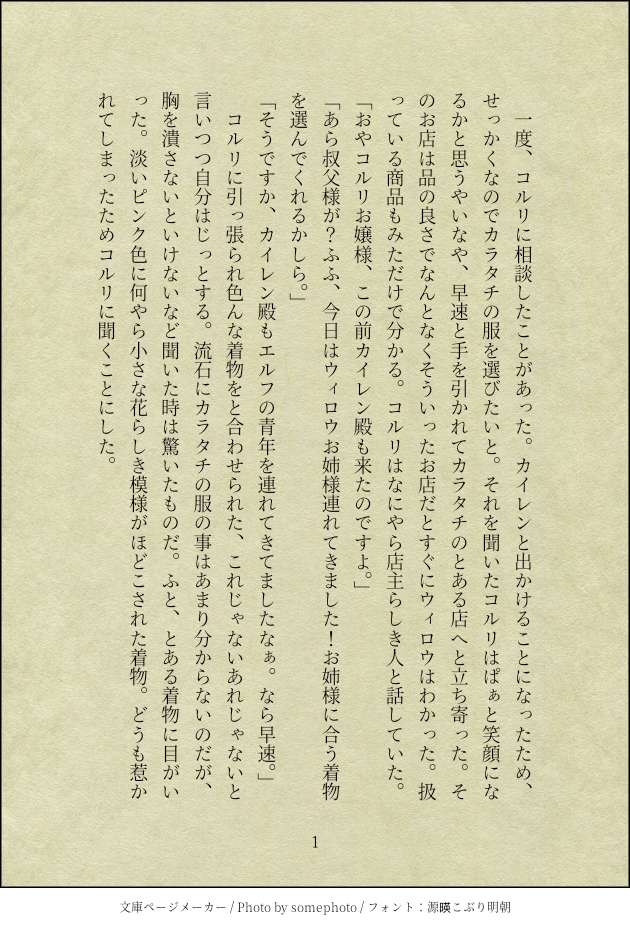 一度、コルリに相談したことがあった。カイレンと出かけることになったため、
せっかくなのでカラタチの服を選びたいと。それを聞いたコルリはぱぁと笑顔にな
るかと思うやいなや、早速と手を引かれてカラタチのとある店へと立ち寄った。そ
のお店は品の良さでなんとなくそういったお店だとすぐにウィロウはわかった。扱
っている商品もみただけで分かる。コルリはなにやら店主らしき人と話していた。
「おやコルリお嬢様、この前カイレン殿も来たのですよ。」
「あら叔父様が？ふふ、今日はウィロウお姉様連れてきました！お姉様に合う着物
を選んでくれるかしら。」
「そうですか、カイレン殿もエルフの青年を連れてきてましたなぁ。なら早速。」
　コルリに引っ張られ色んな着物をと合わせられた、これじゃないあれじゃないと
言いつつ自分はじっとする。流石にカラタチの服の事はあまり分からないのだが、
胸を潰さないといけないなど聞いた時は驚いたものだ。ふと、とある着物に目がい
った。淡いピンク色に何やら小さな花らしき模様がほどこされた着物。どうも惹か
れてしまったためコルリに聞くことにした。
1
文庫ページメーカー / Photo by somephoto / フォント：源暎こぶり明朝